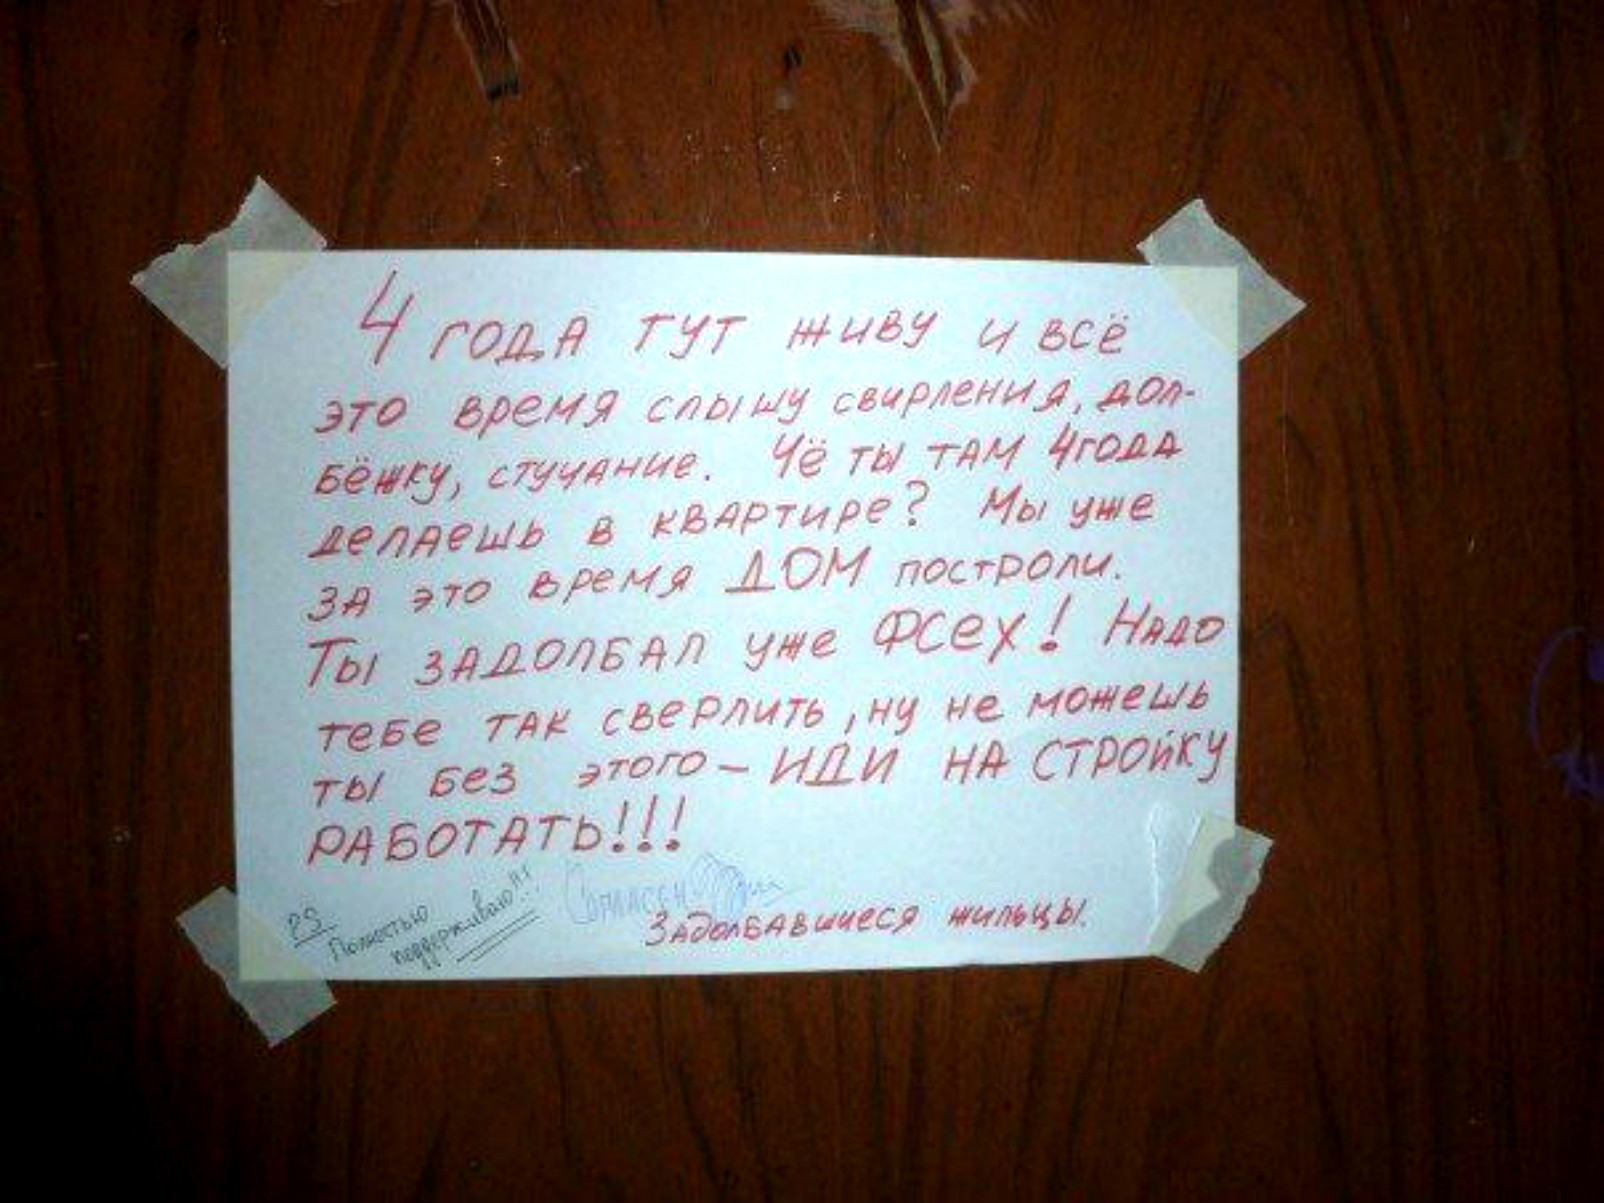 4 ГОДА ТУТ ЖИВУ И ВСЁ
ЭТО ВРЕМЯ СЛЫШУ СВИРЛЕНИЯ, ДОЛ-
БЁЖКУ, СТУЧАНИЕ. ЧЁ ТЫ ТАМ 4 ГОДА
ДЕЛАЕШЬ В КВАРТИРЕ? МЫ УЖЕ
ЗА ЭТО ВРЕМЯ ДОМ ПОСТРОЛИ.
ТЫ ЗАДОЛБАЛ УЖЕ ФСЕХ! НАДО
ТЕБЕ ТАК СВЕРЛИТЬ, НУ НЕ МОЖЕШЬ
ТЫ БЕЗ ЭТОГО – ИДИ НА СТРОЙКУ
РАБОТАТЬ!!!
PS
Полностью
поддерживаю!!!
Согласен
ЗАДОЛБАВШИЕСЯ ЖИЛЬЦЫ.